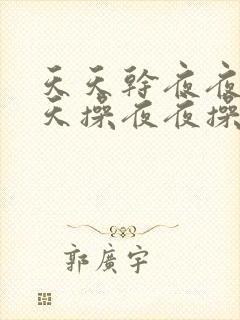 天天幹夜夜
天操夜夜操
郭廣宇